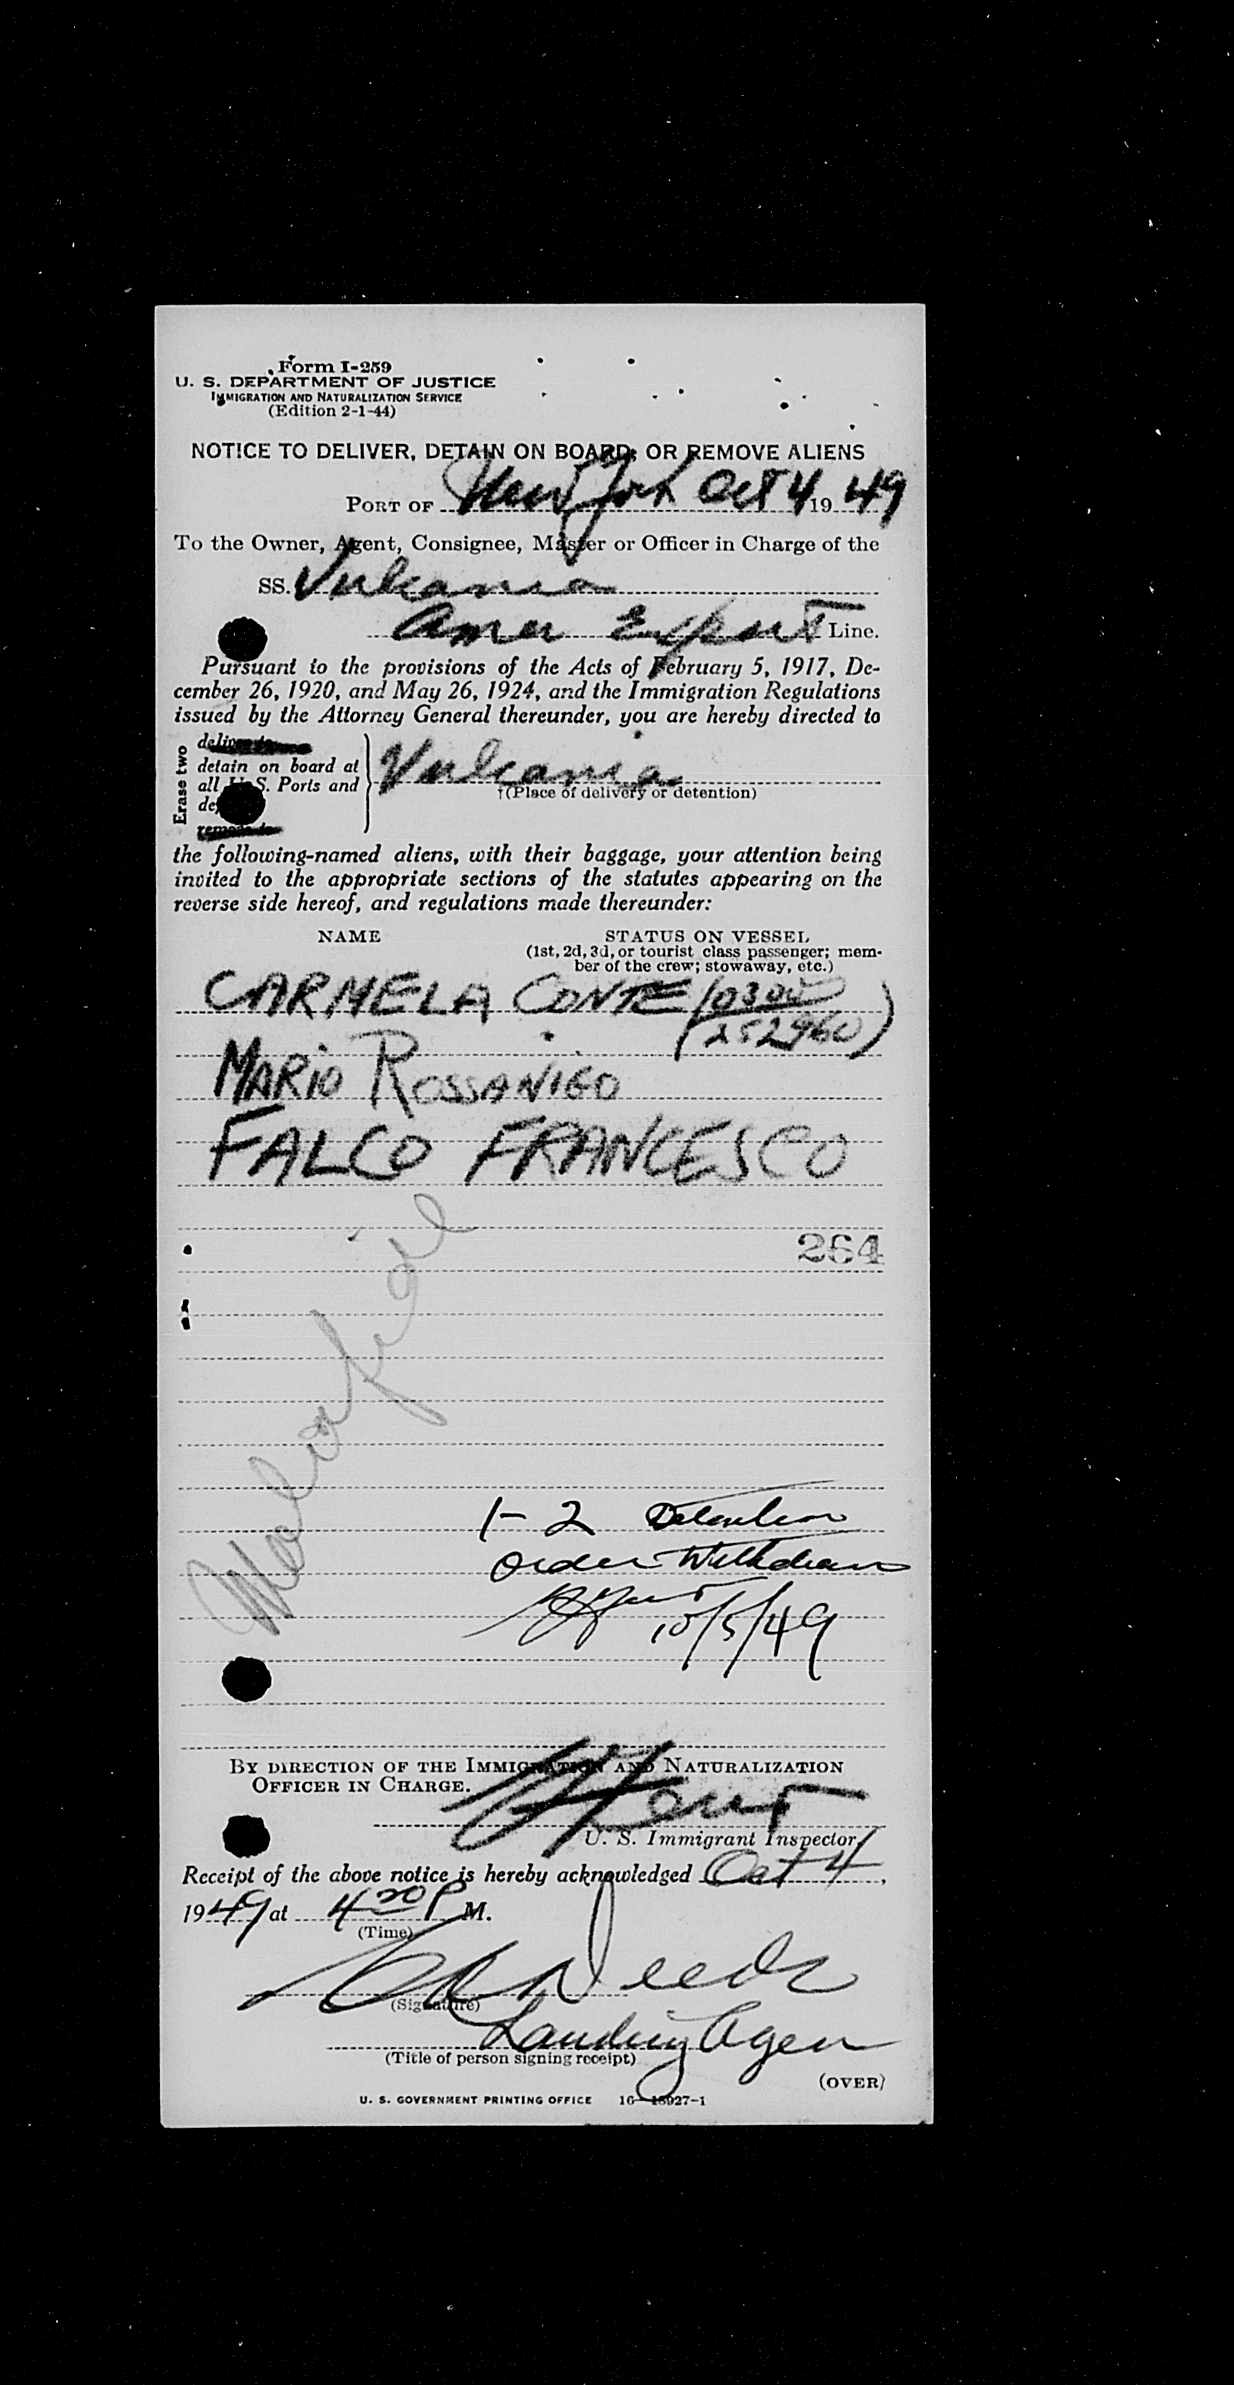 Form I-259
U. S. DEPARTMENT OF JUSTICE
IMMIGRATION AND NATURALIZATION SERVICE
(Edition 2-1-44)
NOTICE TO DELIVER, DETAIN ON BOARD, OR REMOVE ALIENS
PORT OF New York Oct 4 19 49
To the Owner, Agent, Consignee, Master or Officer in Charge of the
SS. Vulcania
Amer Export Line.
Pursuant to the provisions of the Acts of February 5, 1917, De-
cember 26, 1920, and May 26, 1924, and the Immigration Regulations
issued by the Attorney General thereunder, you are hereby directed to
Erase two
deliver to
detain on board at
all U. S. Ports and
remove to
Vulcania
†(Place of delivery or detention)
the following-named aliens, with their baggage, your attention being
invited to the appropriate sections of the statutes appearing on the
reverse side hereof, and regulations made thereunder:
NAME
STATUS ON VESSEL
(1st, 2d, 3d, or tourist class passenger; mem-
ber of the crew; stowaway, etc.)
CARMELA CONTE (0300
252960)
MARIO ROSSANIGO
FALCO FRANCESCO
264
1-2 Detention
Order Withdrawn
10/5/49
BY DIRECTION OF THE IMMIGRATION AND NATURALIZATION
OFFICER IN CHARGE.
U. S. Immigrant Inspector
Receipt of the above notice is hereby acknowledged Oct 4,
1949 at 4 20 P M.
(Time)
(Signature)
Landing Agen
(Title of person signing receipt)
(OVER)
U. S. GOVERNMENT PRINTING OFFICE 16-18927-1